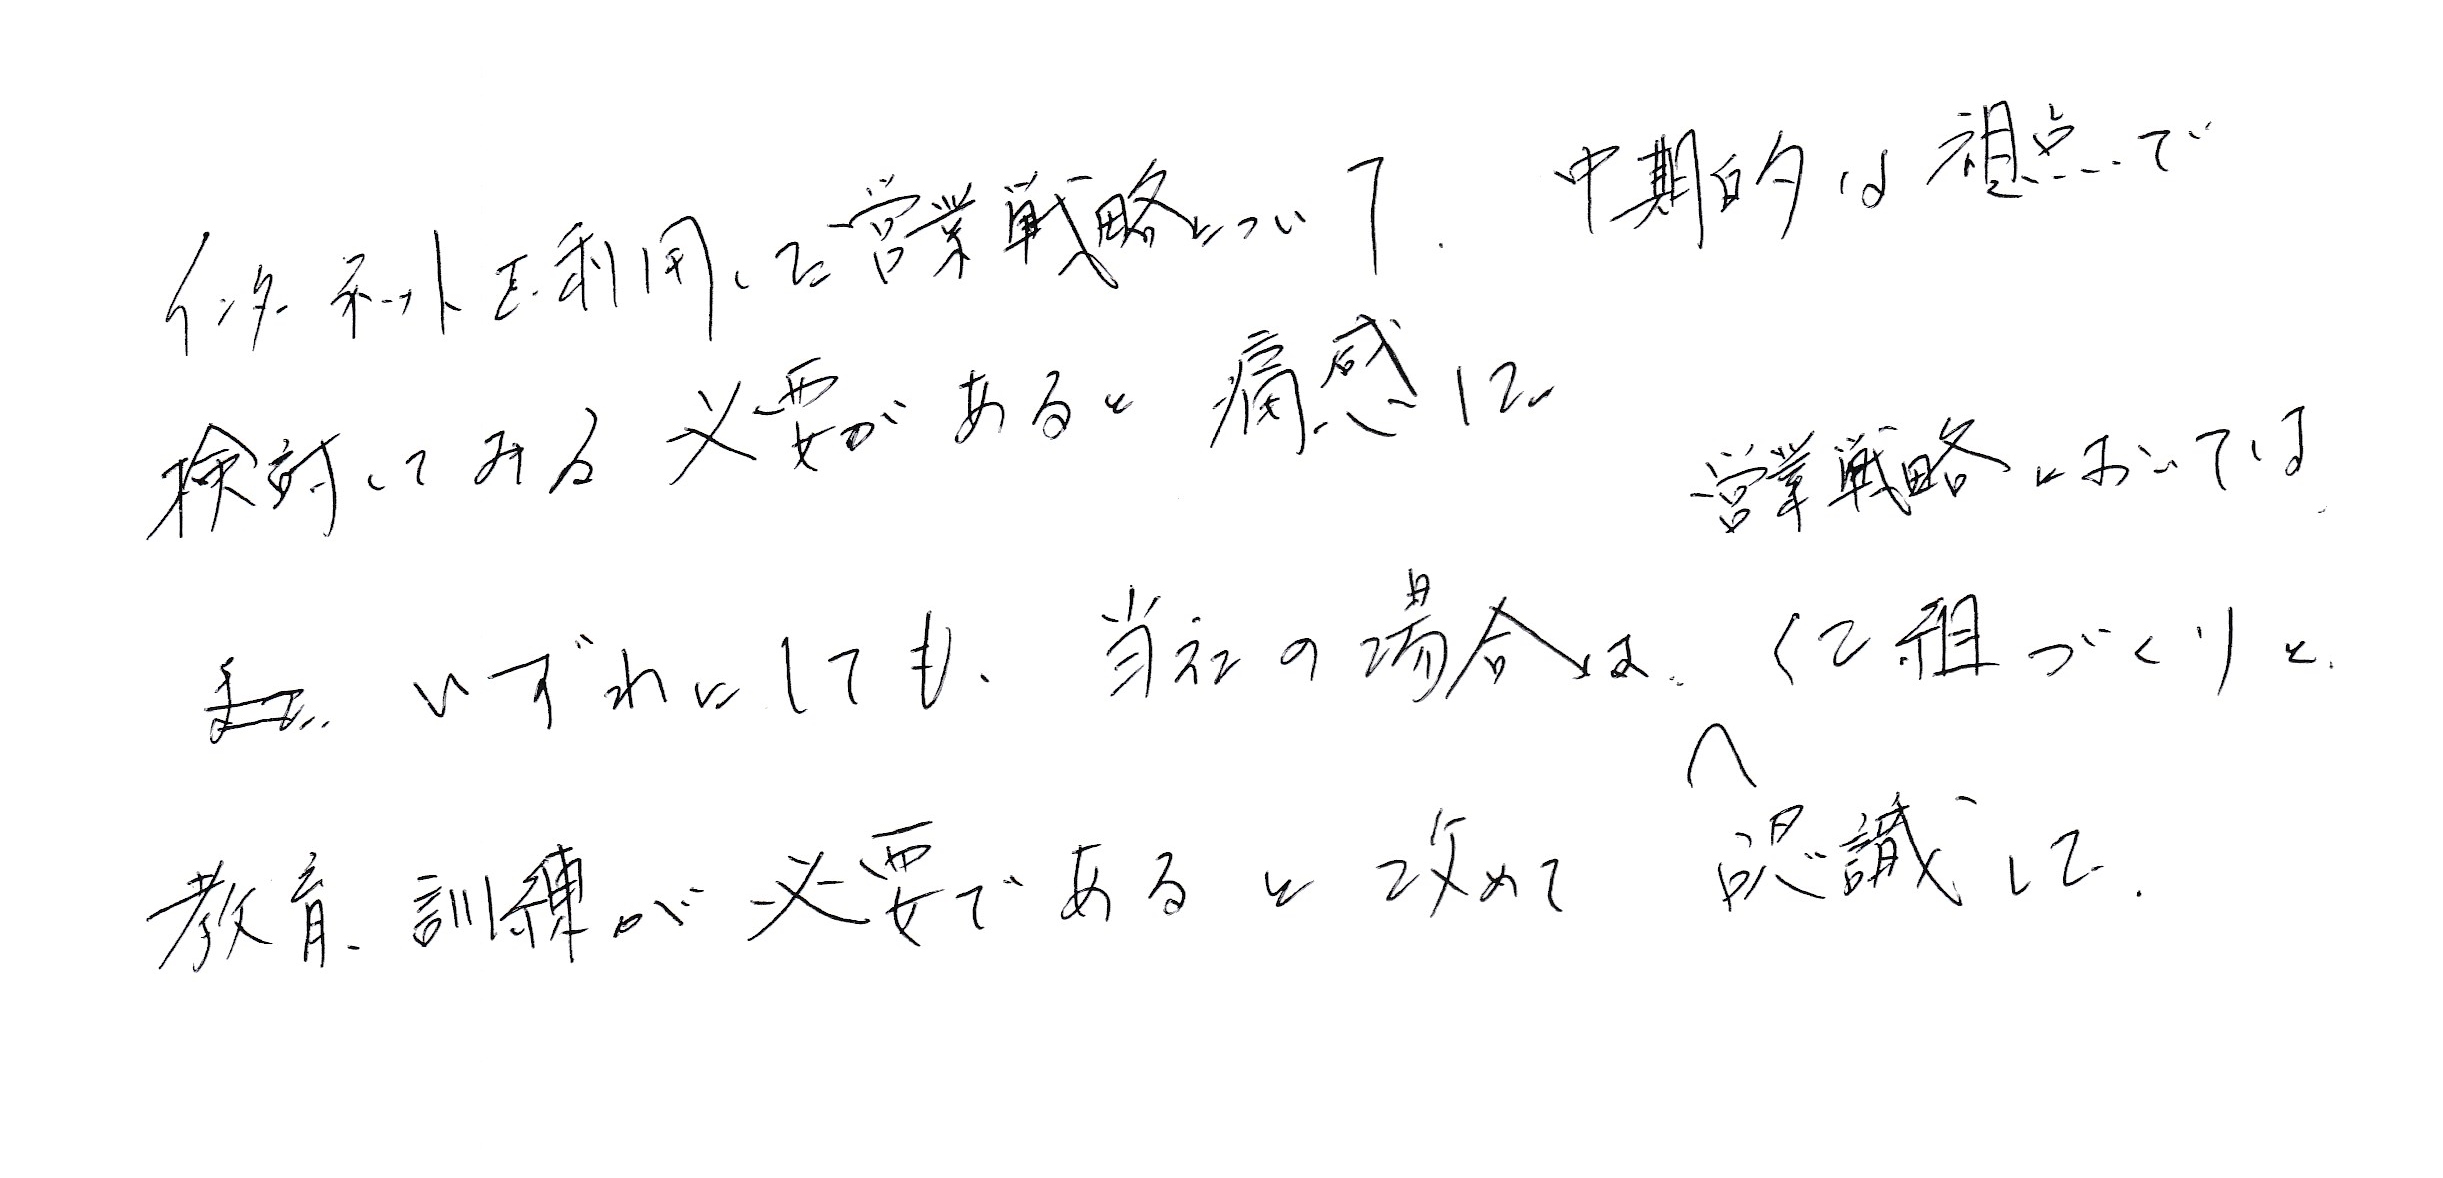 インターネットを利用した営業戦略について、中期的な視点で
検討してみる必要があると痛感した
営業戦略においては、
いずれにしても、当社の場合は、仕組づくりと、
教育、訓練が必要であると改めて認識した.